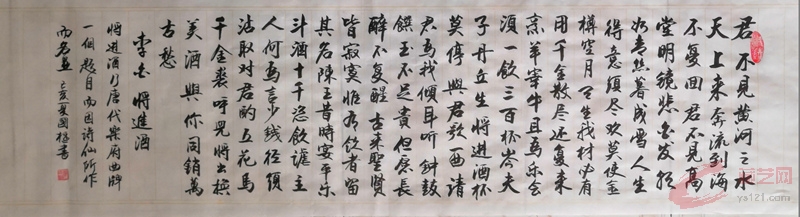 君不见黄河之水
天上来奔流到海
不复回君不见高
堂明镜悲白发朝
如青丝暮成雪人生
得意须尽欢莫使金
樽空月天生我材必有
用千金散尽还复来
烹羊宰牛且为乐会
须一饮三百杯岑夫
子丹丘生将进酒杯
莫停与君歌一曲请
君为我倾耳听钟鼓
馔玉不足贵但愿长
醉不复醒古来圣贤
皆寂寞惟有饮者留
其名陈王昔时宴平乐
斗酒十千恣欢谑主
人何为言少钱径须
沽取对君酌五花马
千金裘呼儿将出换
美酒与你同销万
古愁
李白将进酒
将进酒乃唐代乐府曲牌
一个题目而因诗仙所作
而名
艺网
ys121.com